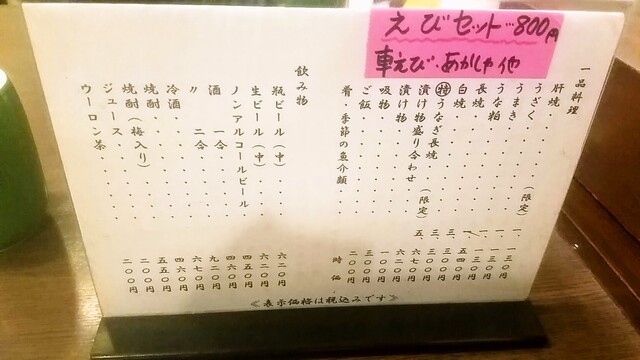 えびセット…800円
車えび・あかしゃ他
一品料理
肝焼
うざく（限定）
うまき
うな粕
長焼
白焼
㊕うなぎ長焼
漬け物盛り合わせ（限定）
漬け物
吸物
ご飯 三〇〇円
肴・季節の魚介類 時価
飲み物
瓶ビール（中） 六二〇円
生ビール（中） 六二〇円
ノンアルコールビール 四五〇円
酒 一合 四六〇円
〃 二合 九二〇円
冷酒 六七〇円
焼酎 四六〇円
焼酎（梅入り） 五五〇円
ジュース 二〇〇円
ウーロン茶 二〇〇円
≪表示価格は税込みです≫